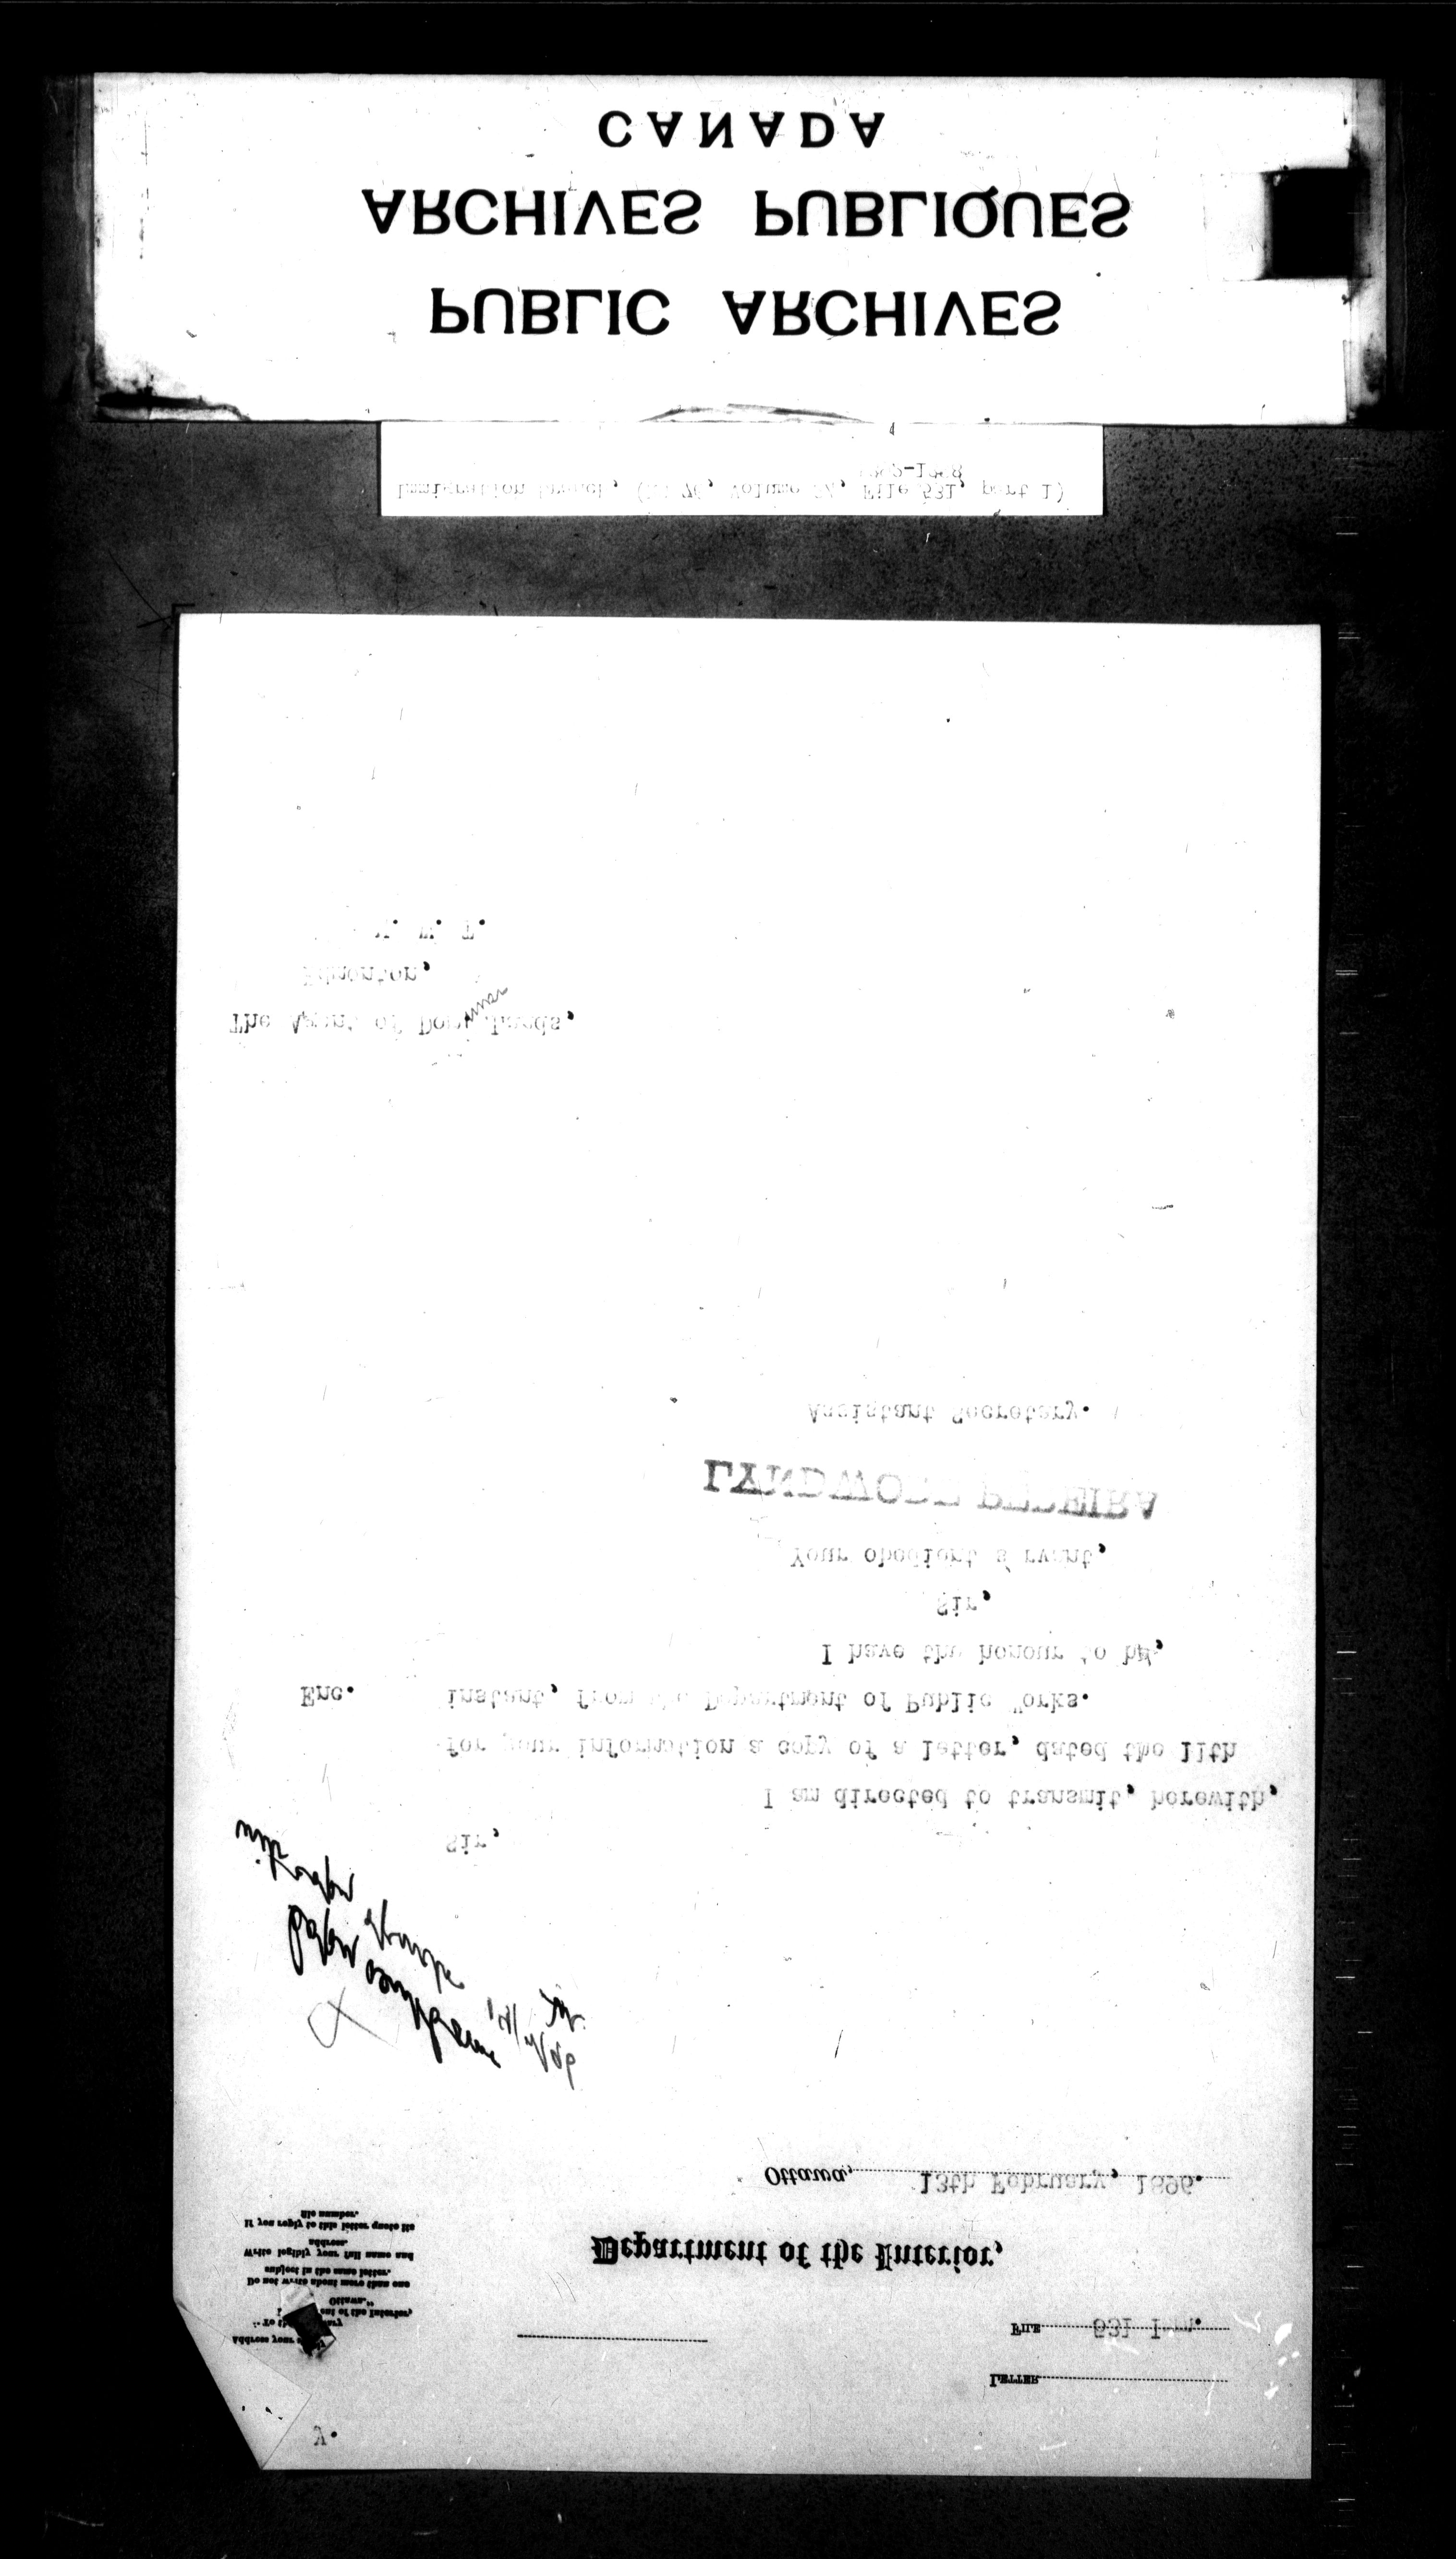 Y.
LETTER
FILE 531 Imm.
Address your
"To the
of the Interior,
Ottawa."
Do not write about more than one
subject in the same letter.
Write legibly your full name and
address.
If you reply to this letter quote its
file number.
Department of the Interior,
Ottawa, 13th February, 1896.
Sir,
I am directed to transmit, herewith,
for your information a copy of a letter, dated the 11th
instant, from the Department of Public Works.
Enc.
I have the honour to be,
Sir,
Your obedient servant,
LYNDWODE PEREIRA
Assistant Secretary.
The Agent of Dominion Lands,
Edmonton,
N. W. T.
Immigration Branch, (RG 76, Volume File 531, part 1)
PUBLIC ARCHIVES
ARCHIVES PUBLIQUES
CANADA